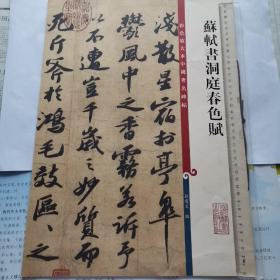 蘇軾書洞庭春色賦
彩色放大本中國著名碑帖
孫寶文 編
淺散星宿於亭皋
鬱風中之香霧若訴予
以不遭豈千歲之妙質而
死斤斧於鴻毛效區區之